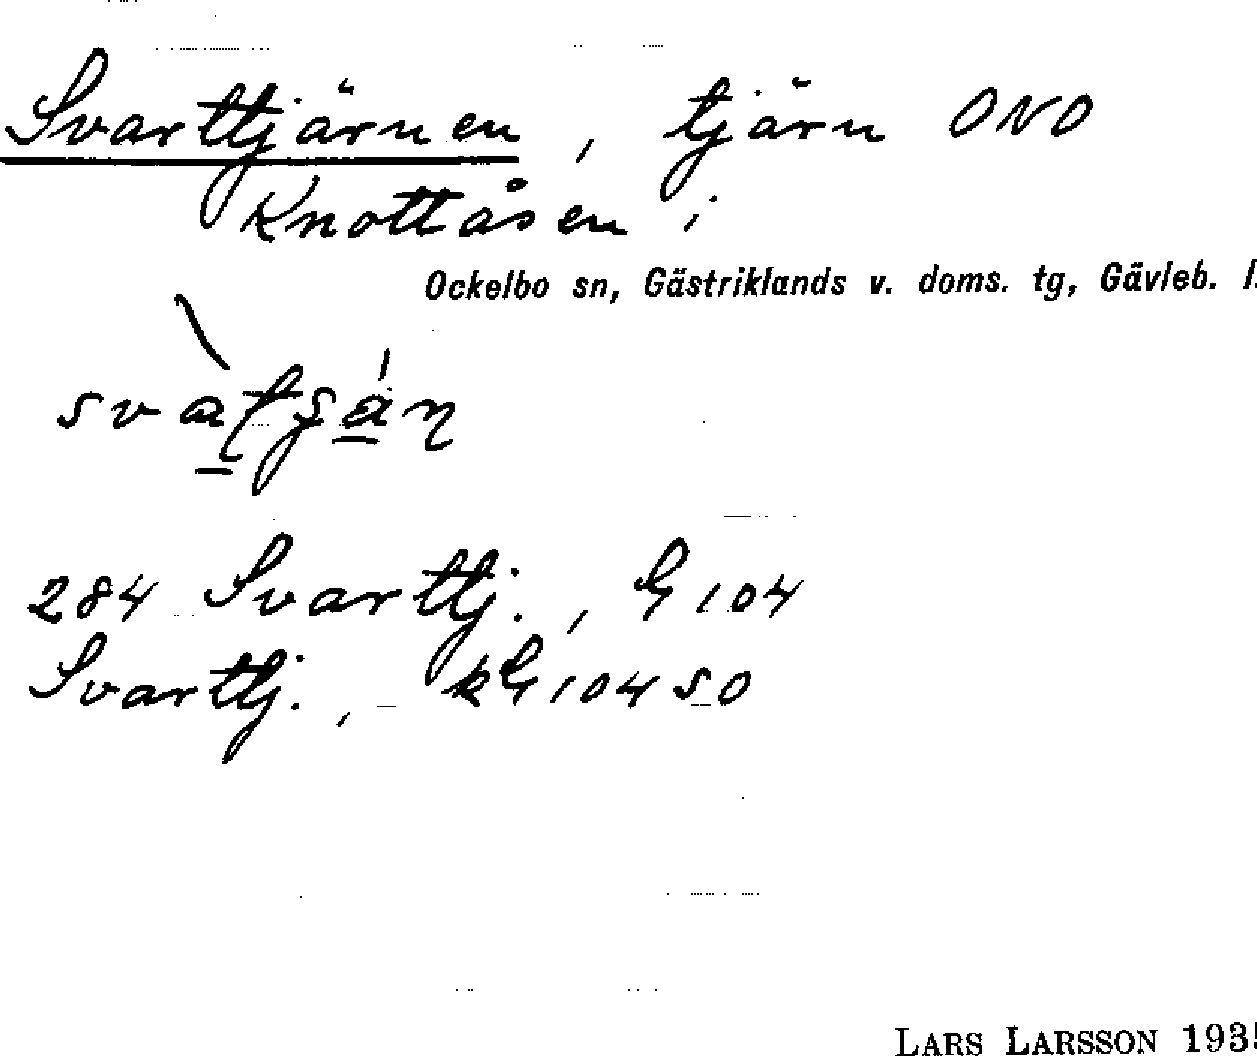 Svarttjärnen, tjärn ONO
Knottåsen i
Ockelbo sn, Gästriklands v. doms. tg, Gävleb. l.
284 Svarttj., G 104
Svarttj., kG 104 SO
LARS LARSSON 193